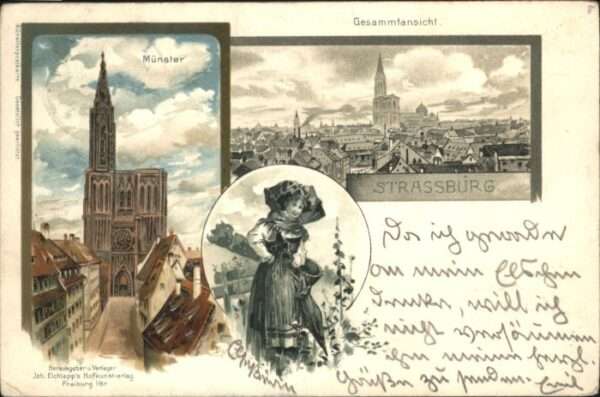 Gesammtansicht.
Münster
STRASSBURG
Da ich gerade
an mein Elschen
denke, will ich
nicht versäumen
ihm meine herzl.
Grüße zu senden. Emil
Herausgeber u. Verleger
Joh. Elchlepp's Hofkunstverlag
Freiburg i/Br